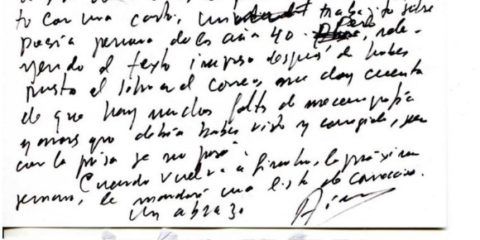 to con una carta, un trabajito sobre
poesía peruana de los año 40. Pero, rele-
yendo el texto impreso después de haber
puesto el libro al correo, me doy cuenta
de que hay muchas falta de mecanografía
y que debía haber visto y corregido, pero
con la prisa se me pasó.
Cuando vuelva a la próxima
semana, le mandaré una lista de correcciones.
Un abrazo.